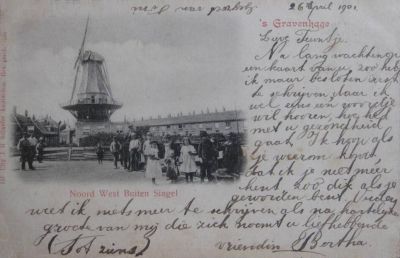 26 April 1901
's Gravenhage
Lieve Teuntje
Na lang wachten op
een kaart van u, zoo heb
ik maar besloten eerst
te schrijven daar ik
wel eens een woordje
wil hooren, hoe het
met u gezondheid
gaat. Ik hoop als
je weerom komt
dat ik je niet meer
kent zoo dik als je
geworden bent. Nu dag
weet ik niets meer te schrijven als na hartelijke
groete van mij die zich noemt u liefhebbende
(Tot ziens) vriendin Bertha.
Noord West Buiten Singel